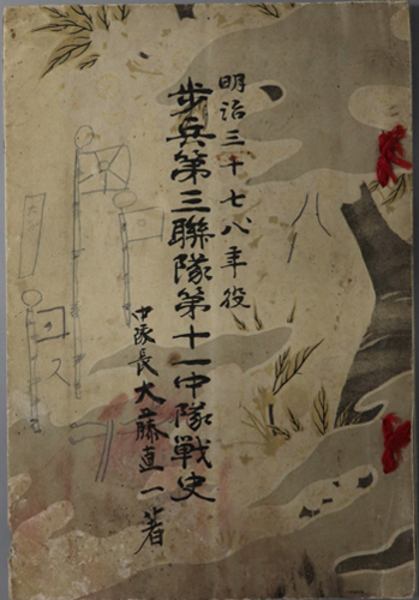 明治三十七八年役
步兵第三聯隊第十一中隊戦史
中隊長大藤直一著